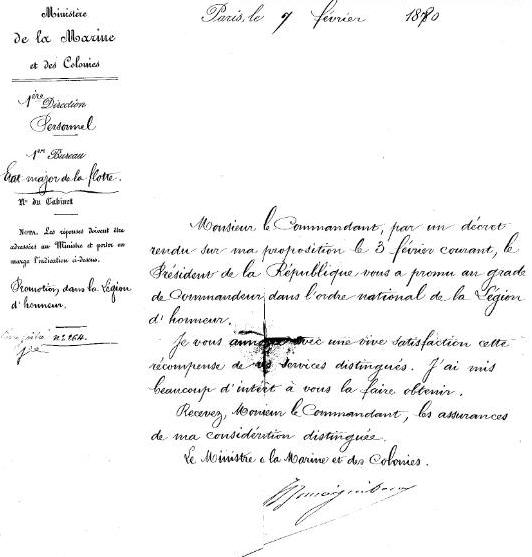 Ministère
de la Marine
et des Colonies
1ère Direction
Personnel
1er Bureau
Etat major de la flotte.
No du Cabinet
NOTA. Les réponses doivent être
adressées au Ministre et porter en
marge l'indication ci-dessus.
Promotion, dans la Légion
d'honneur.
No 264.
Paris, le 7 février 1880
Monsieur le Commandant, par un décret
rendu sur ma proposition le 3 février courant, le
Président de la République vous a promu au grade
de Commandeur dans l'ordre national de la Légion
d'honneur.
Je vous annonce avec une vive satisfaction cette
récompense de services distingués. J'ai mis
beaucoup d'intérêt à vous la faire obtenir.
Recevez, Monsieur le Commandant, les assurances
de ma considération distinguée.
Le Ministre de la Marine et des Colonies.